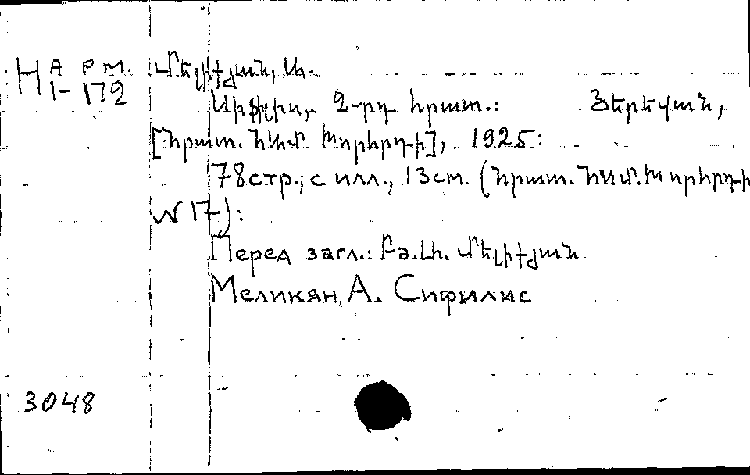 На рм.
1-172
Մելիքյան, Ա.
Սիֆիլիս, 2-րդ հրատ.: Յերեվան,
[հրատ. Խորհրդի], 1925:
78стр.; с илл., 13см. (հրատ. Խորհրդի
N 17):
Перед загл.: Բժ. Մելիքյան
Меликян, А. Сифилис
3048